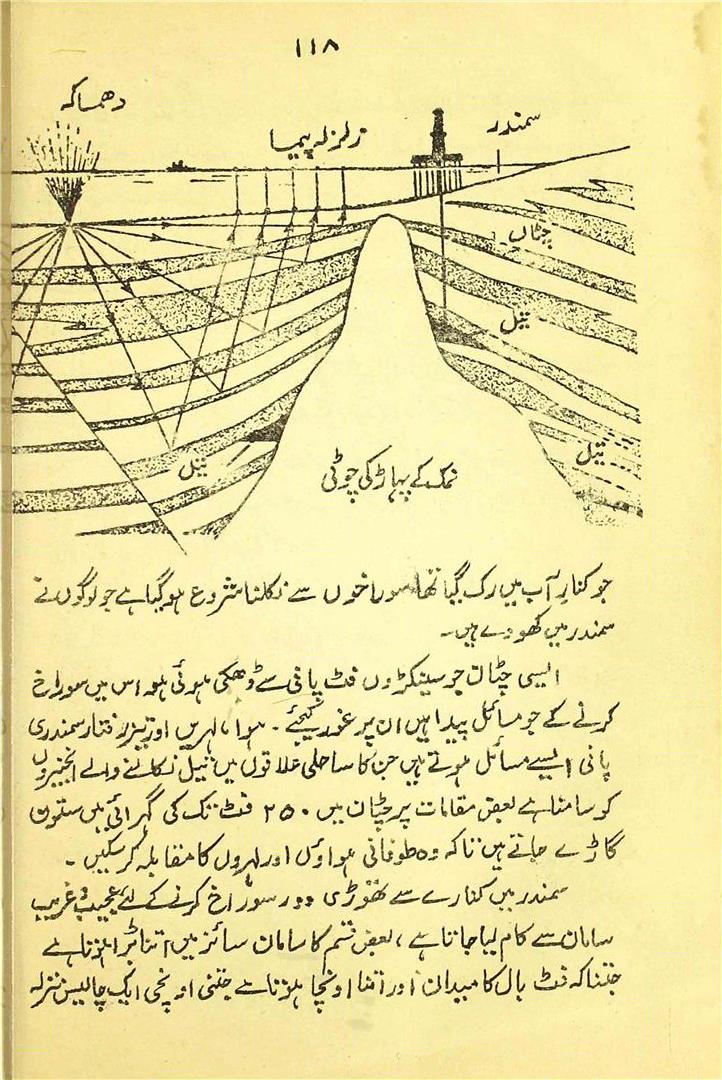 ۱۱۸
دھماکہ
زلزلہ پیما
سمندر
چٹاں
تیل
تیل
تیل
نمک کے پہاڑ کی چوٹی
جو کنارِ آب میں رک گیا تھا سوراخوں سے نکلنا شروع ہو گیا ہے جو لوگوں نے
سمندر میں کھودے ہیں۔
ایسی چٹان جو سینکڑوں فٹ پانی سے ڈھکی ہوئی ہو اس میں سوراخ
کرنے کے جو مسائل پیدا ہیں ان پر غور کیجئے۔ ہوا، لہریں اور تیز رفتار سمندری
پانی ایسے مسائل ہوتے ہیں جن کا ساحلی علاقوں میں تیل نکالنے والے انجنیروں
کو سامنا ہے بعض مقامات پر چٹان میں ۲۵۰ فٹ تک کی گہرائی میں ستون
گاڑے جاتے ہیں تاکہ وہ طوفانی ہواؤں اور لہروں کا مقابلہ کر سکیں۔
سمندر میں کنارے سے تھوڑی دور سوراخ کرنے کے لئے عجیب و غریب
سامان سے کام لیا جاتا ہے، بعض قسم کا سامان سائز میں اتنا بڑا ہوتا ہے
جتنا کہ فٹ بال کا میدان اور اتنا اونچا ہوتا ہے جتنی اونچی ایک چالیس منزلہ